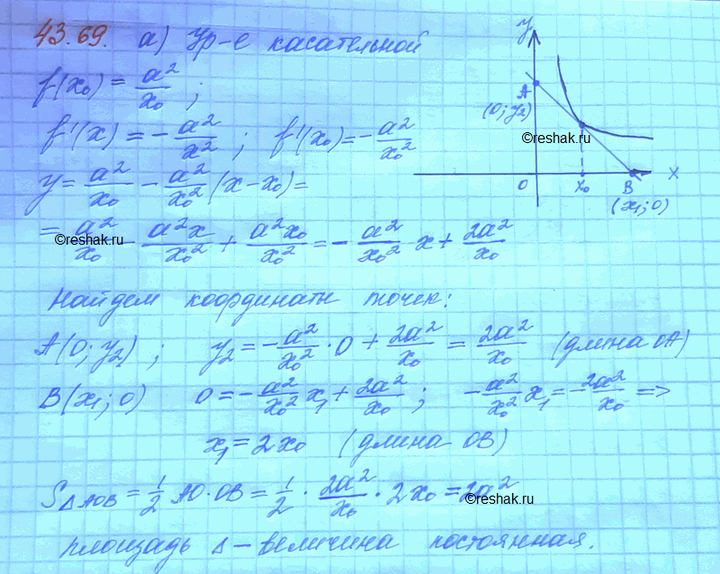 43.69. а) Ур-е касательной
f(x₀) = a²/x₀ ;
f'(x) = -a²/x² ; f'(x₀) = -a²/x₀²
y = a²/x₀ - a²/x₀² (x - x₀) =
= a²/x₀ - a²x/x₀² + a²x₀/x₀² = -a²/x₀² x + 2a²/x₀
y
A
(0; y₂)
©reshak.ru
0 x₀ B x
(x₁; 0)
©reshak.ru
Найдем координаты точек:
A(0; y₂) ; y₂ = -a²/x₀² · 0 + 2a²/x₀ = 2a²/x₀ (длина OA)
B(x₁; 0) 0 = -a²/x₀² x₁ + 2a²/x₀ ; -a²/x₀² x₁ = -2a²/x₀ =>
x₁ = 2x₀ (длина OB)
S△AOB = 1/2 AO · OB = 1/2 · 2a²/x₀ · 2x₀ = 2a²
©reshak.ru
площадь Δ – величина постоянная.